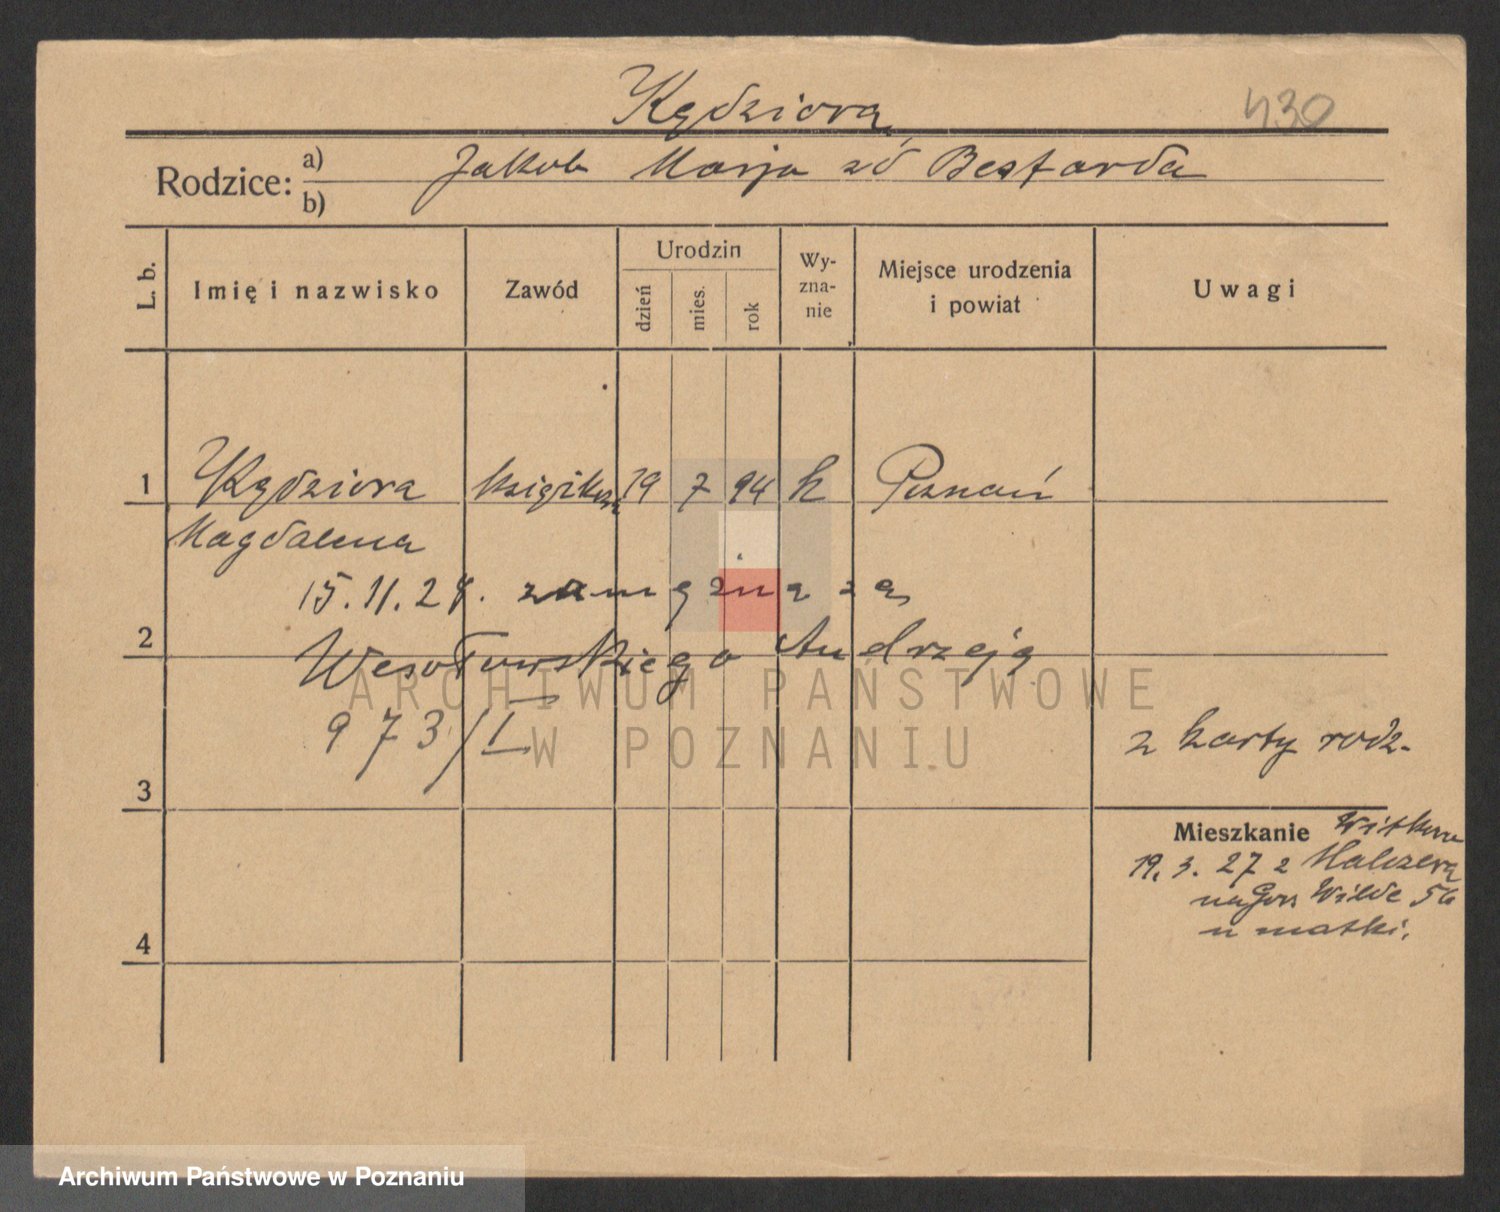 Kędziora
430
Rodzice: a) b)
Jakob Marja zd Bestarda
L. b.
Imię i nazwisko
Zawód
Urodzin
dzień
mies.
rok
Wy-
zna-
nie
Miejsce urodzenia
i powiat
Uwagi
1 Kędziora 19 7 94 k Poznań
Magdalena
15.11.28. zamężna za
2
Wesołowskiego Andrzeja
ARCHIWUM PAŃSTWOWE
W POZNANIU
973/I
z karty rodz.
3
Mieszkanie
19.3.27 z
na Gór. Wilde 56
u matki.
4
Archiwum Państwowe w Poznaniu